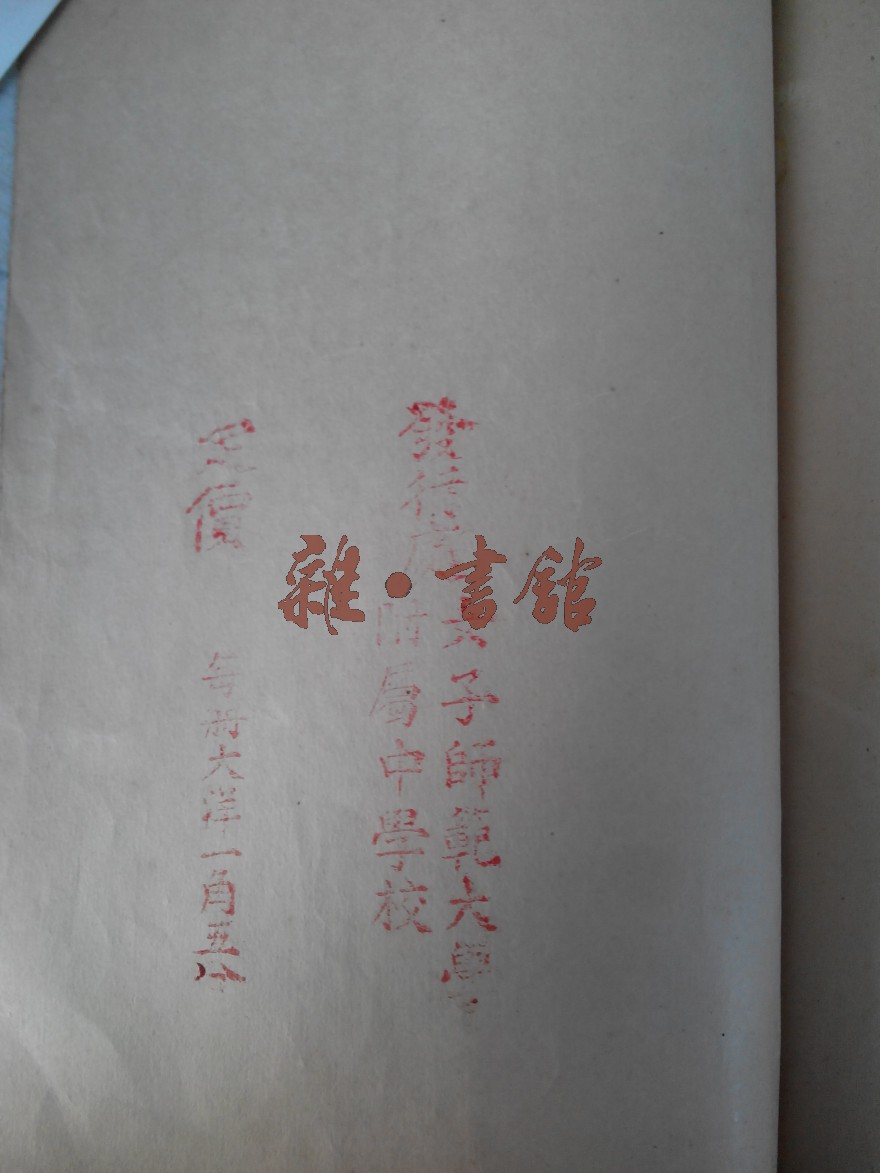 發行處
女子師範大學
附屬中學校
定價 每册大洋一角五分
雜·書館